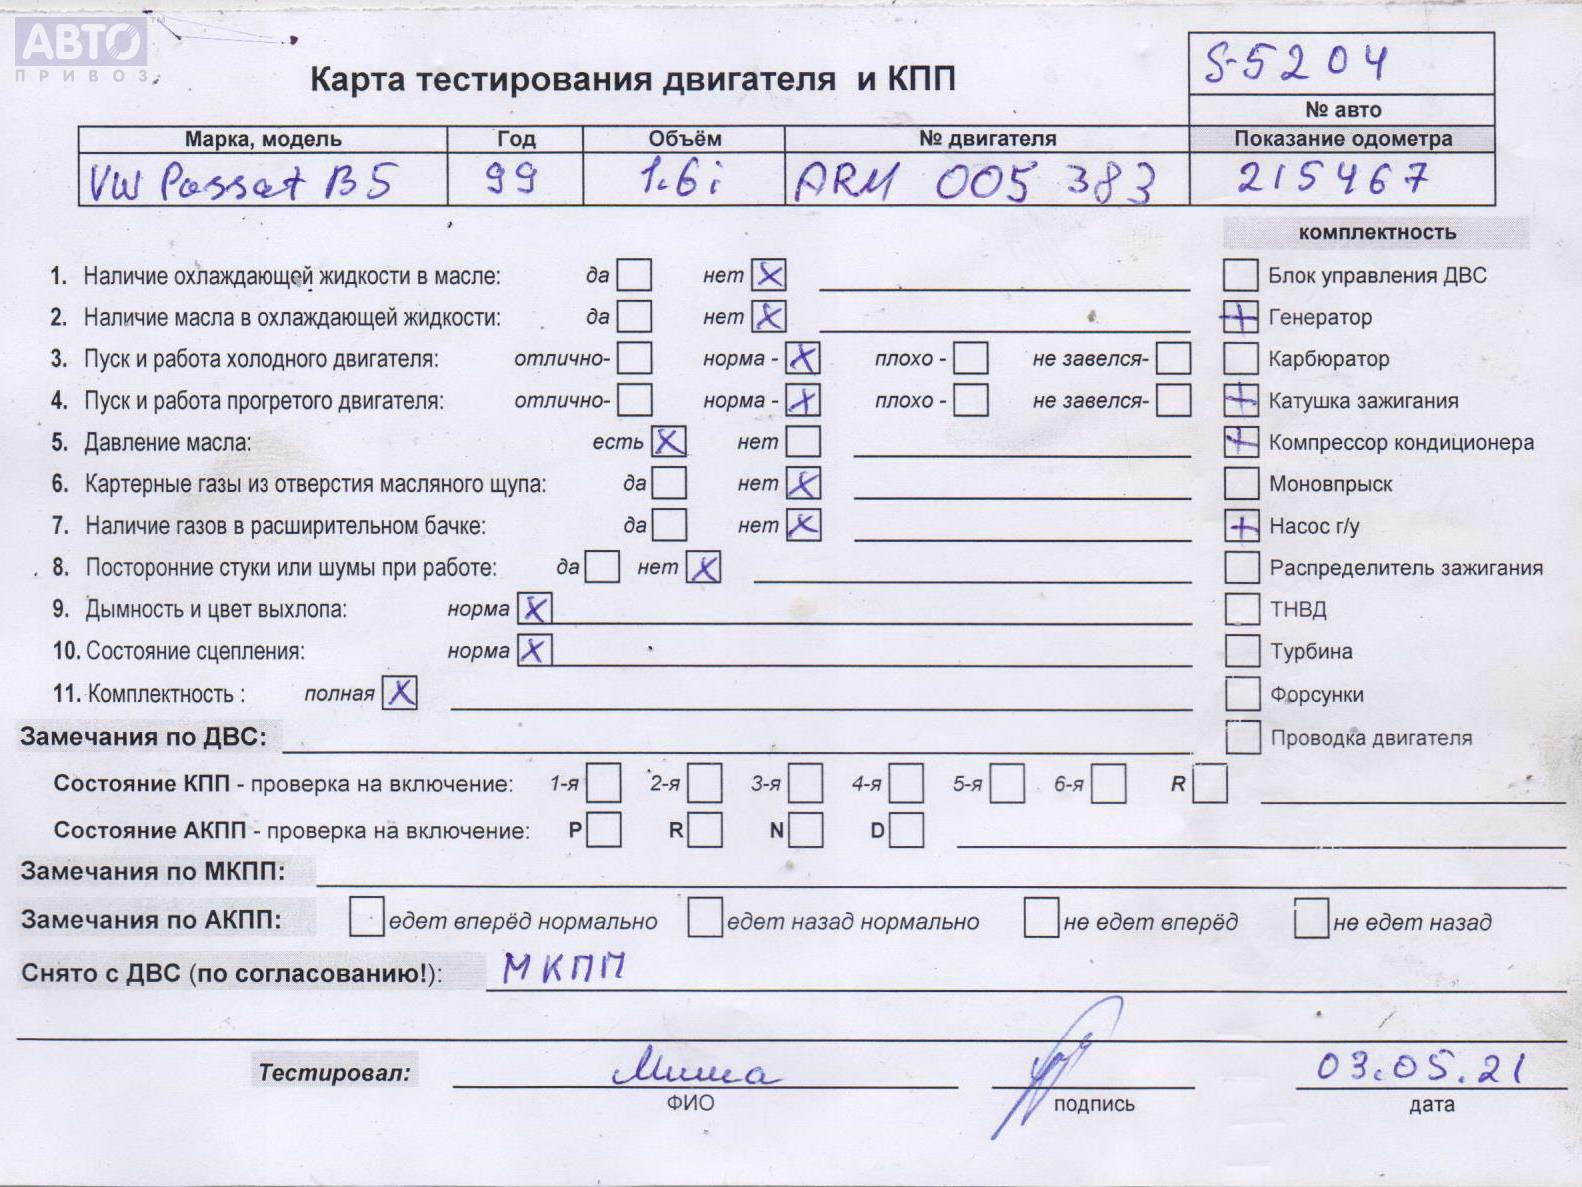 АВТО
ПРИВОЗ
TM
Карта тестирования двигателя и КПП
S-5204
№ авто
Марка, модель Год Объём № двигателя Показание одометра
VW Passat B5 99 1.6i ARM 005 383 215467
комплектность
1. Наличие охлаждающей жидкости в масле: да нет X Блок управления ДВС
2. Наличие масла в охлаждающей жидкости: да нет X + Генератор
3. Пуск и работа холодного двигателя: отлично- норма - X плохо - не завелся- Карбюратор
4. Пуск и работа прогретого двигателя: отлично- норма - X плохо - не завелся- + Катушка зажигания
5. Давление масла: есть X нет + Компрессор кондиционера
6. Картерные газы из отверстия масляного щупа: да нет X Моновпрыск
7. Наличие газов в расширительном бачке: да нет X + Насос г/у
8. Посторонние стуки или шумы при работе: да нет X Распределитель зажигания
9. Дымность и цвет выхлопа: норма X ТНВД
10. Состояние сцепления: норма X Турбина
11. Комплектность : полная X Форсунки
Замечания по ДВС: Проводка двигателя
Состояние КПП - проверка на включение: 1-я 2-я 3-я 4-я 5-я 6-я R
Состояние АКПП - проверка на включение: P R N D
Замечания по МКПП:
Замечания по АКПП: едет вперёд нормально едет назад нормально не едет вперёд не едет назад
Снято с ДВС (по согласованию!): МКПП
Тестировал: Миша 03.05.21
ФИО подпись дата